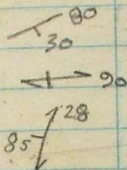 80
30
90
28
85